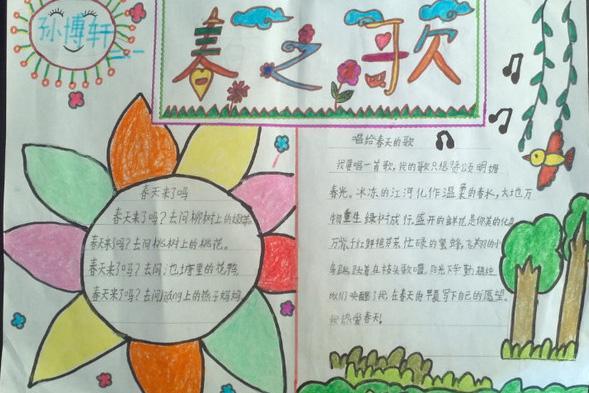 孙博轩
春之歌
春天来了吗
春天来了吗?去问柳树上的
春天来了吗?去问桃树上的桃花。
春天来了吗?去问池塘里的花鸭
春天来了吗?去问 上的燕子妈妈
唱给春天的歌
我要唱一首歌,我的歌只想 颂明媚
春光。冰冻的江河化作温柔的春水,大地万
物重生绿树成行,盛开的鲜花是你美的化
万紫千红鲜艳芬芳 忙碌的蜜蜂飞翔的小
在枝头歌唱,阳光下
在春天的早晨写下自己的愿望。
我热爱春天!